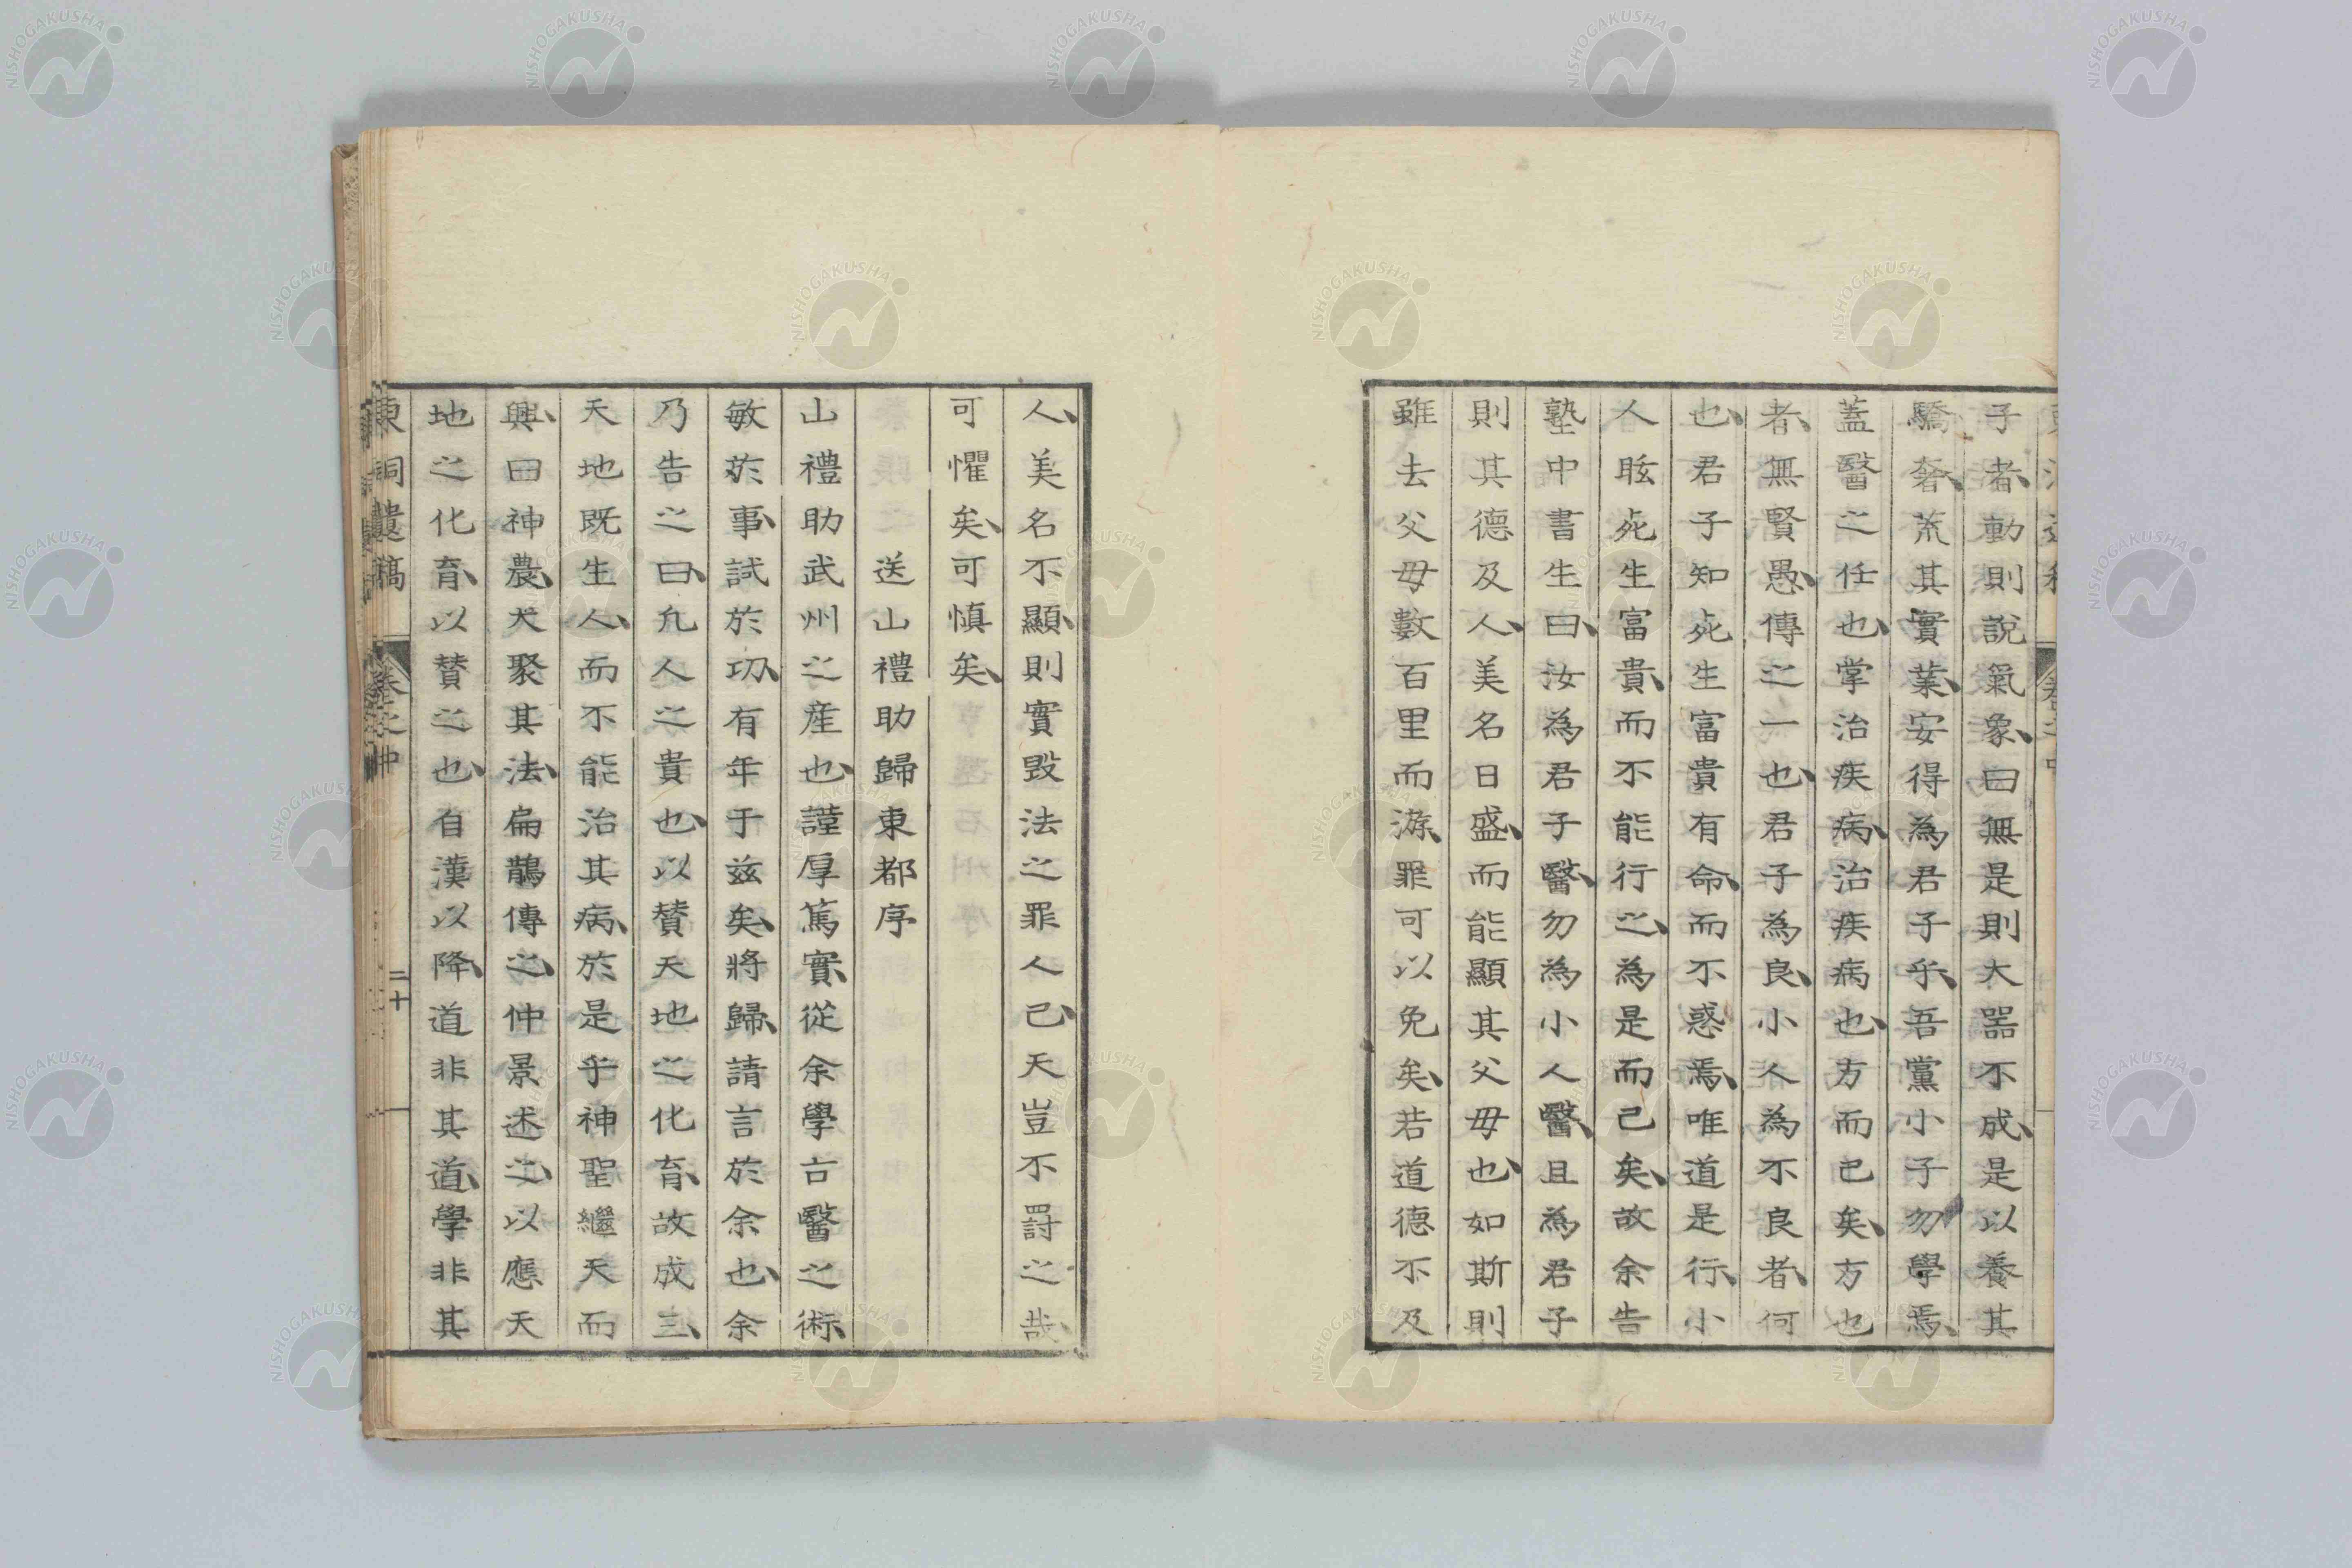 子者、動則說氣象、曰無是則大器不成、是以養其
驕奢、荒其實葉、安得為君子乎、吾黨小子勿學焉、
蓋醫之任也、掌治疾病、治疾病也、方而已矣、方也
者、無賢愚、傳之一也、君子為良、小人為不良者、何
也、君子知死生富貴有命、而不惑焉、唯道是行、小
人眩死生富貴、而不能行之、為是而已矣、故余告
塾中書生曰、汝為君子醫、勿為小人醫、且為君子
則其德及人、美名日盛、而能顯其父母也、如斯則
雖去父母數百里而游、罪可以免矣、若道德不及
人、美名不顯、則實毀法之罪人已、天豈不罸之哉、
可懼矣、可慎矣、
送山禮助歸東都序
山禮助武州之産也、謹厚篤實、從余學古醫之術、
敏於事、試於功、有年于兹矣、將歸、請言於余也、余
乃告之曰、凡人之貴也、以賛天地之化育、故成三、
天地既生人、而不能治其病、於是乎神聖繼天而
興、曰神農、大聚其法、扁鵲傳之、仲景述之、以應天
地之化育、以賛之也、自漢以降、道非其道、學非其
東洞遺稿 卷之中 二十
NISHOGAKUSHA